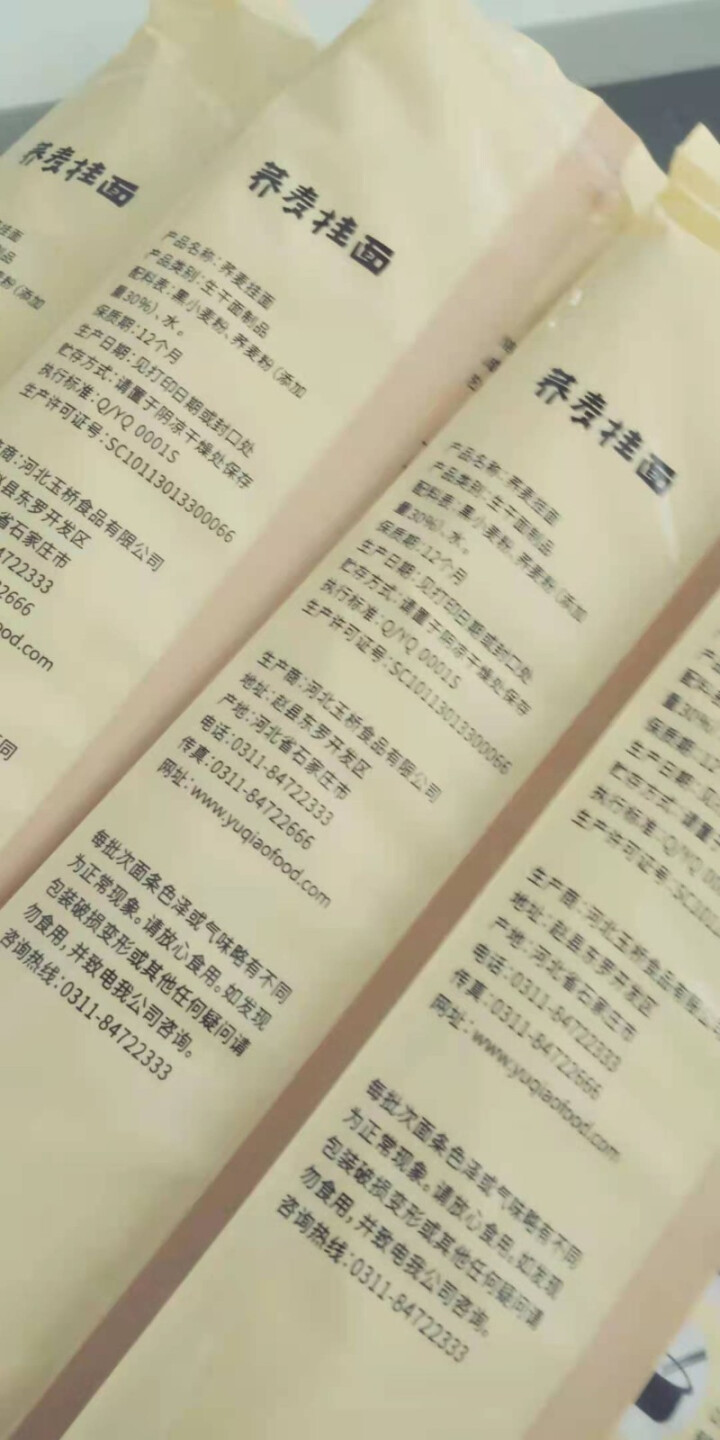 荞麦挂面
挂面
制品
麦粉（添加
荞麦挂面
产品名称：荞麦挂面
产品类别：生干面制品
配料表：黑小麦粉、荞麦粉（添加
量30%）、水。
保质期：12个月
生产日期：见打印日期或封口处
贮存方式：请置于阴凉干燥处保存
执行标准：Q/YQ 0001S
生产许可证号：SC10113013300066
商：河北玉桥食品有限公司
赵县东罗开发区
省石家庄市
4722333
2666
ood.com
不同
荞麦挂面
产品名称：荞麦挂面
产品类别：生干面制品
配料表：黑小麦粉、荞麦粉（添加
量30%）、水。
保质期：12个月
生产日期：见打印日期或封口处
贮存方式：请置于阴凉干燥处保存
执行标准：Q/YQ 0001S
生产许可证号：SC10113013300066
生产商：河北玉桥食品有限公司
地址：赵县东罗开发区
产地：河北省石家庄市
电话：0311-84722333
传真：0311-84722666
网址：www.yuqiaofood.com
每批次面条色泽或气味略有不同
为正常现象。请放心食用。如发现
包装破损变形或其他任何疑问请
勿食用，并致电我公司咨询。
咨询热线：0311-84722333
配料
量30%
保质期：12
生产日期：见
贮存方式：请置
执行标准：Q/YQ 00
生产许可证号：SC101
生产商：河北玉桥食品有限公
地址：赵县东罗开发区
产地：河北省石家庄市
电话：0311-84722333
传真：0311-84722666
网址：www.yuqiaofood.com
每批次面条色泽或气味略有不同
为正常现象。请放心食用。如发现
包装破损变形或其他任何疑问请
勿食用，并致电我公司咨询。
咨询热线：0311-84722333